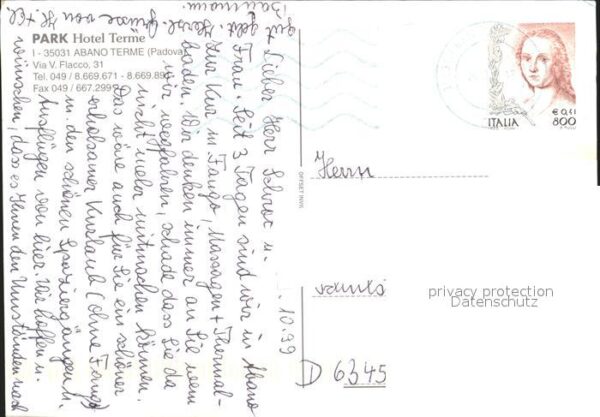 PARK Hotel Terme
I - 35031 ABANO TERME (Padova)
Via V. Flacco, 31
Tel. 049 / 8.669.671 - 8.669.89
Fax 049 / 667.299
10.99
Lieber Herr u.
Frau. Seit 3 Tagen sind wir in Abano
zur Kur in Fango, Massagen + Thermal-
baden. Wir denken immer an Sie wenn
wir wegfahren, schade dass Sie da
nicht mehr mitmachen können.
Das wäre auch für Sie ein schöner
erholsamer Kururlaub (ohne Fango)
m. den schönen Spaziergängen u.
Ausflügen von hier. Wir hoffen u.
wünschen, dass es Ihnen den Umständen nach
gut geht. Herzl. Grüsse von
Baumann
ITALIA
€ 0,41
800
Herrn
OFFSET INVIC.
D 6345
privacy protection
Datenschutz